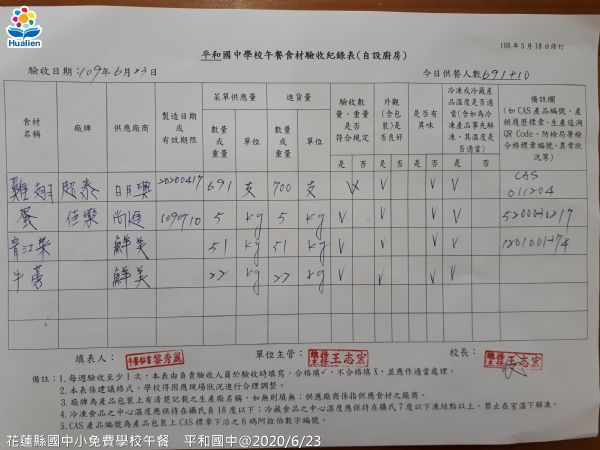 Hualien
106年5月18日修訂
平和國中學校午餐食材驗收紀錄表(自設廚房)
驗收日期:109年6月23日
今日供餐人數691+10
食材名稱 廠牌 供應廠商 製造日期或有效期限 菜單供應量 進貨量 驗收數量、重量是否符合規定 外觀(含包裝)是否良好 是否有異味 冷凍或冷藏產品溫度是否適當(含如為冷凍產品事先解凍,其溫度是否適當) 備註欄(如CAS產品編號、產銷履歷標章、生產追溯QR Code、防檢局屠檢合格標章編號、異常狀況等)
數量或重量 單位 數量或重量 單位 是 否 是 否 是 否 是 否
雞翅 超秦 20200417 691 支 700 支 V V V V CAS 011204
蛋 佳樂 1090710 5 kg 5 kg V V V V
青江菜 鮮美 51 kg 51 kg V V V V
牛蒡 鮮美 22 kg 22 kg V V V V
填表人: 單位主管: 王志宏 校長: 王志宏
備註:1.每週驗收至少1次,本表由負責驗收人員於驗收時填寫,合格填✓,不合格填X,並應作適當處理。
2.本表係建議格式,學校得因應現場狀況進行合理調整。
3.廠牌為產品包裝上有清楚記載之生產廠名稱,如無則填無;供應廠商係指供應食材之廠商。
4.冷凍食品之中心溫度應保持在攝氏負18度以下;冷藏食品之中心溫度應保持在攝氏7度以下凍結點以上,禁止在室溫下解凍。
5.CAS產品編號為產品包裝上CAS標章下沿之6碼阿拉伯數字編號。
花蓮縣國中小免費學校午餐 平和國中@2020/6/23